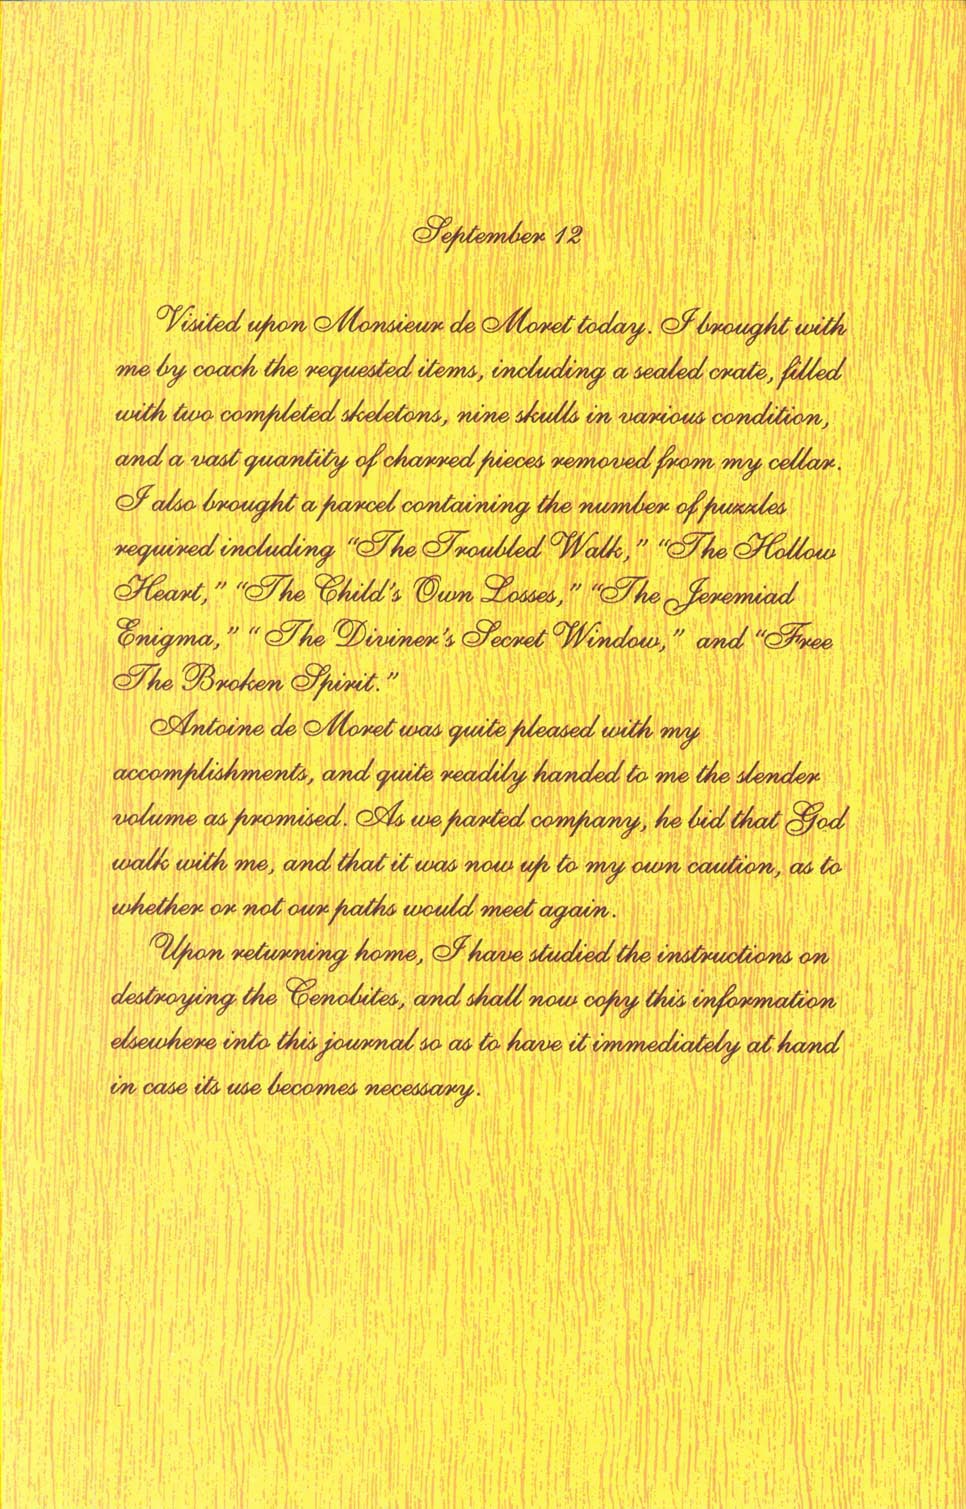 September 12
Visited upon Monsieur de Moret today. I brought with
me by coach the requested items, including a sealed crate, filled
with two completed skeletons, nine skulls in various condition,
and a vast quantity of charred pieces removed from my cellar.
I also brought a parcel containing the number of puzzles
required including “The Troubled Walk,” “The Hollow
Heart,” “The Child’s Own Losses,” “The Jeremiad
Enigma,” “ The Diviner’s Secret Window,” and “Free
The Broken Spirit.”
Antoine de Moret was quite pleased with my
accomplishments, and quite readily handed to me the slender
volume as promised. As we parted company, he bid that God
walk with me, and that it was now up to my own caution, as to
whether or not our paths would meet again.
Upon returning home, I have studied the instructions on
destroying the Cenobites, and shall now copy this information
elsewhere into this journal so as to have it immediately at hand
in case its use becomes necessary.